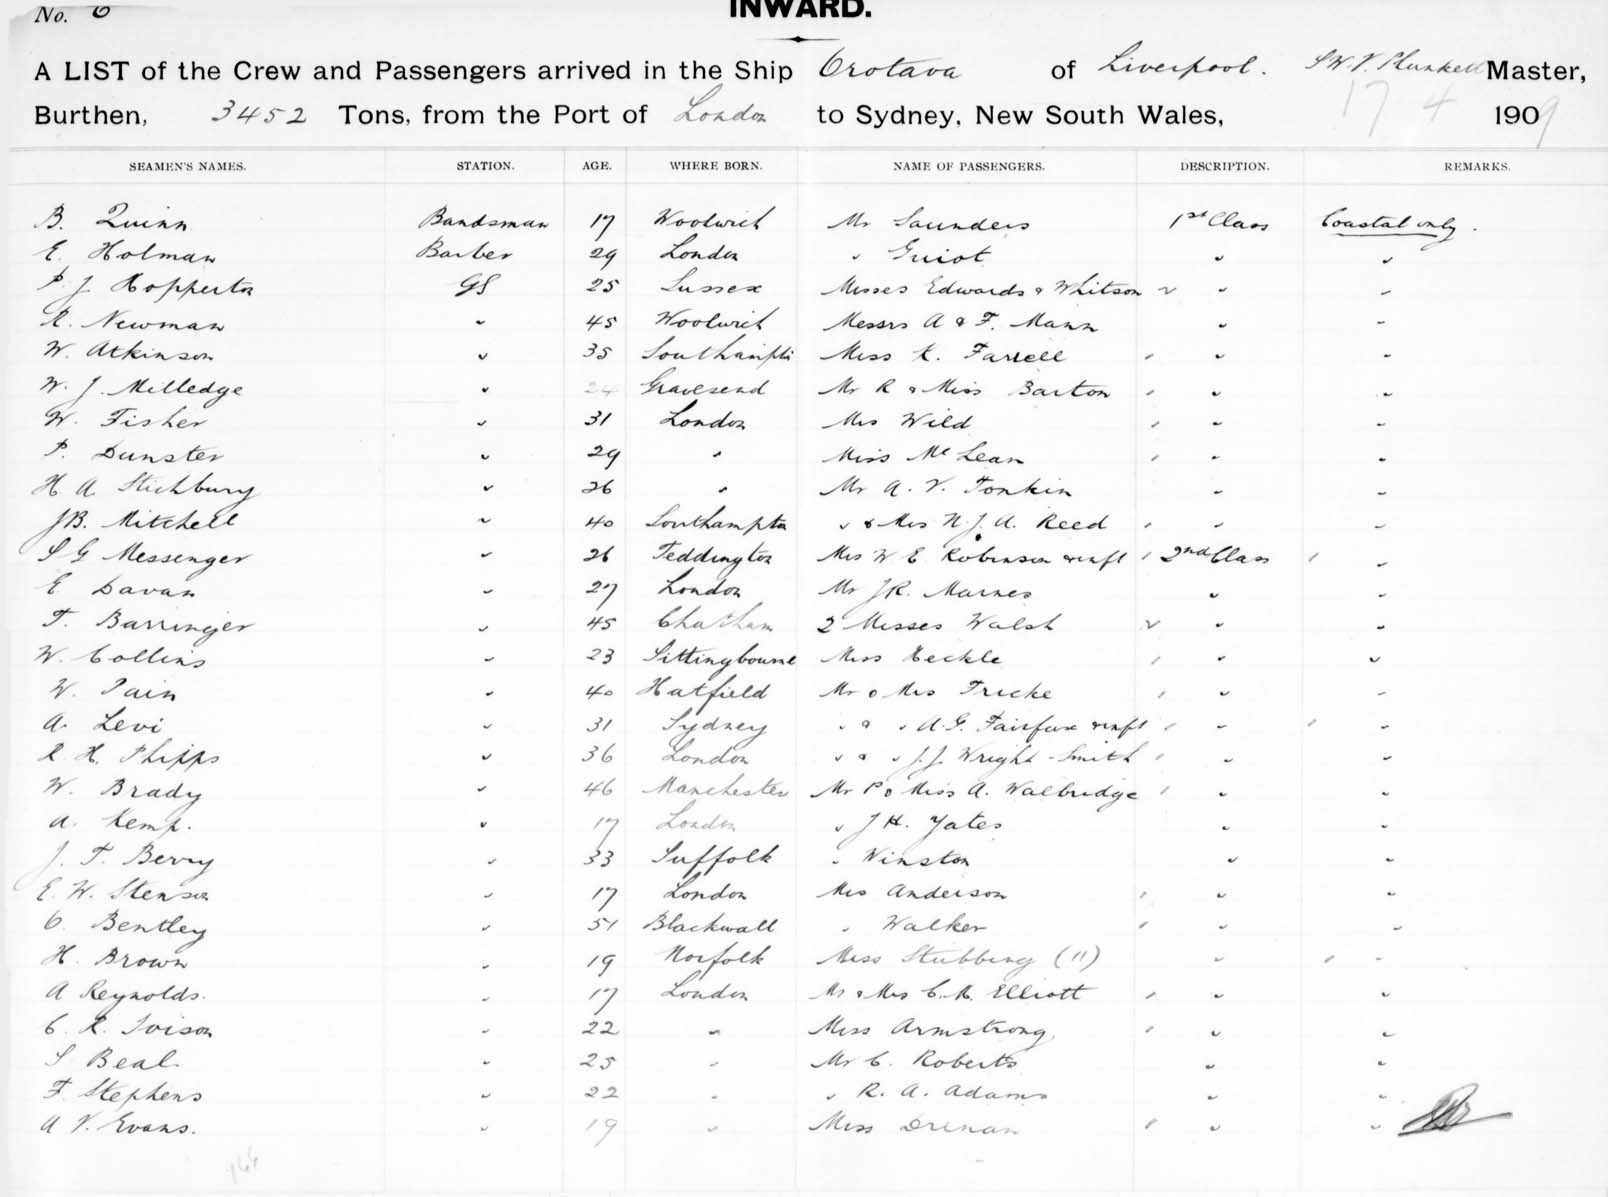 No. 6
INWARD.
A LIST of the Crew and Passengers arrived in the Ship Orotava of Liverpool. Master,
Burthen, 3452 Tons, from the Port of London to Sydney, New South Wales, 17 4 1909
SEAMEN'S NAMES. STATION. AGE. WHERE BORN. NAME OF PASSENGERS. DESCRIPTION. REMARKS.
B. Quinn Bandsman 17 Woolwich Mr Saunders 1st Class Coastal only.
E. Holman Barber 29 London " Guiot " "
P. J. GS 25 Sussex Misses Edwards & Whitson " "
R. Newman " 45 Woolwich Messrs A & F. Mann " "
W. Atkinson " 35 Miss K. Farrell " "
W. J. Milledge " 24 Gravesend Mr R & Miss Barton " "
W. Fisher " 31 London Mrs Wild " "
P. Dunster " 29 " Miss McLean " "
H. A. Stichbury " 26 " Mr A. V. Tonkin " "
J B. Mitchell " 40 Southampton " & Mrs N. J. A. Reed " "
S G Messenger " 26 Teddington Mrs W E Robinson & inft 2nd Class "
E Davan " 27 London Mr J R. Marnes " "
F. Barringer " 45 Chatham 2 Misses Walsh " "
W. Collins " 23 Sittingbourne Miss Heckle " "
W. Pain " 40 Hatfield Mr & Mrs Fricke " "
A. Levi " 31 Sydney " & " A. G. Fairfax & inft " "
R H. Phipps " 36 London " & " J. J. Wright-Smith " "
W. Brady " 46 Manchester Mr P & Miss A. Walbridge " "
A. Kemp. " 17 London " J H. Yates " "
J. T. Berry " 33 Suffolk " Winston " "
E. W. Stenson " 17 London Mrs Anderson " "
C. Bentley " 51 Blackwall " Walker " "
H. Brown " 19 Norfolk Miss Stubbing (11) " "
A Reynolds. " 17 London Mr & Mrs C. M. Elliott " "
C. R. Ivison " 22 " Miss Armstrong " "
S Beal. " 25 " Mr C. Roberts " "
F. Stephens " 22 " " R. A. Adams " "
A V. Evans. " 19 " Miss Drenan " "